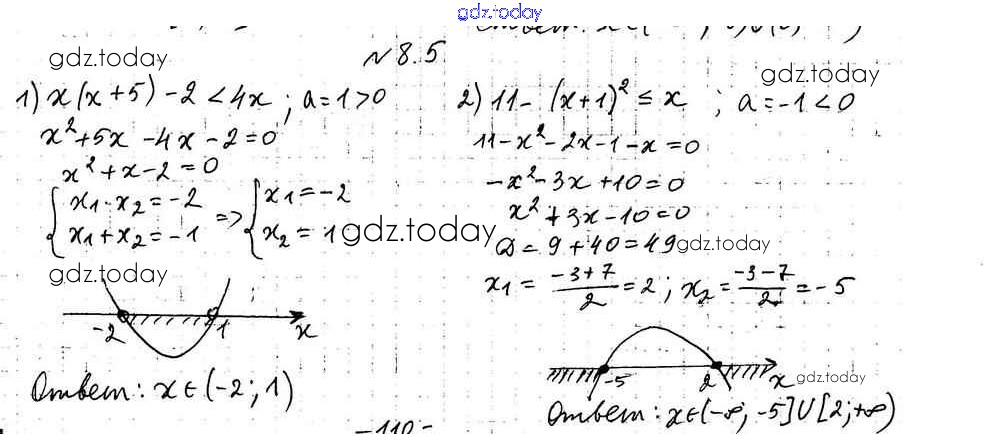 gdz.today
gdz.today
№ 8.5
gdz.today
1) x(x+5)-2<4x; a=1>0
x²+5x-4x-2=0
x²+x-2=0
{x₁·x₂=-2
x₁+x₂=-1 => {x₁=-2
x₂=1
gdz.today
gdz.today
-2 1 x
Ответ: x∈(-2; 1)
2) 11-(x+1)²≤x; a=-1<0
11-x²-2x-1-x=0
-x²-3x+10=0
x²+3x-10=0
D=9+40=49
gdz.today
x₁=(-3+7)/2=2; x₂=(-3-7)/2=-5
-5 2 x
gdz.today
Ответ: x∈(-∞; -5]U[2;+∞)